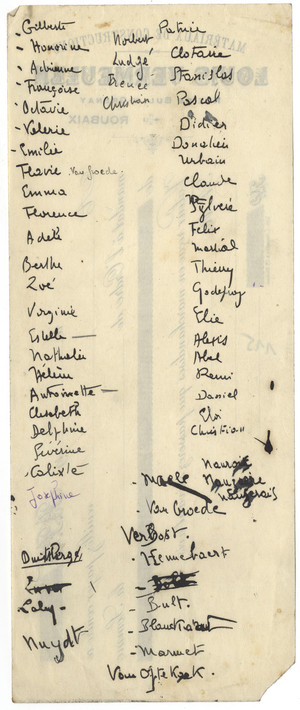 - Gilbert
- Honorine
- Adrienne
- Françoise
- Octavie
- Valerie
- Emilie
Flavie Van Groede.
Emma
Florence
Adele
Berthe
Zoé
Virginie
Estelle —
Nathalie
Hélène
Antoinette —
Elisabeth
Delphine
Séverine
Calixte
Joséphine
Laly -
Nuydt
Norbert
Ludgé
Irénée
Christian
Patrice
Clotaire
Stanislas
Pascal
Didier
Donatien
Urbain
Claude
Sylvère
Felix
Martial
Thierry
Godefroy
Elie
Alexis
Abel
Remi
Daniel
Eloi
Christian
- Van Groede
Verbost.
- Hennebaert
- Bult.
- Marmet
ROUBAIX